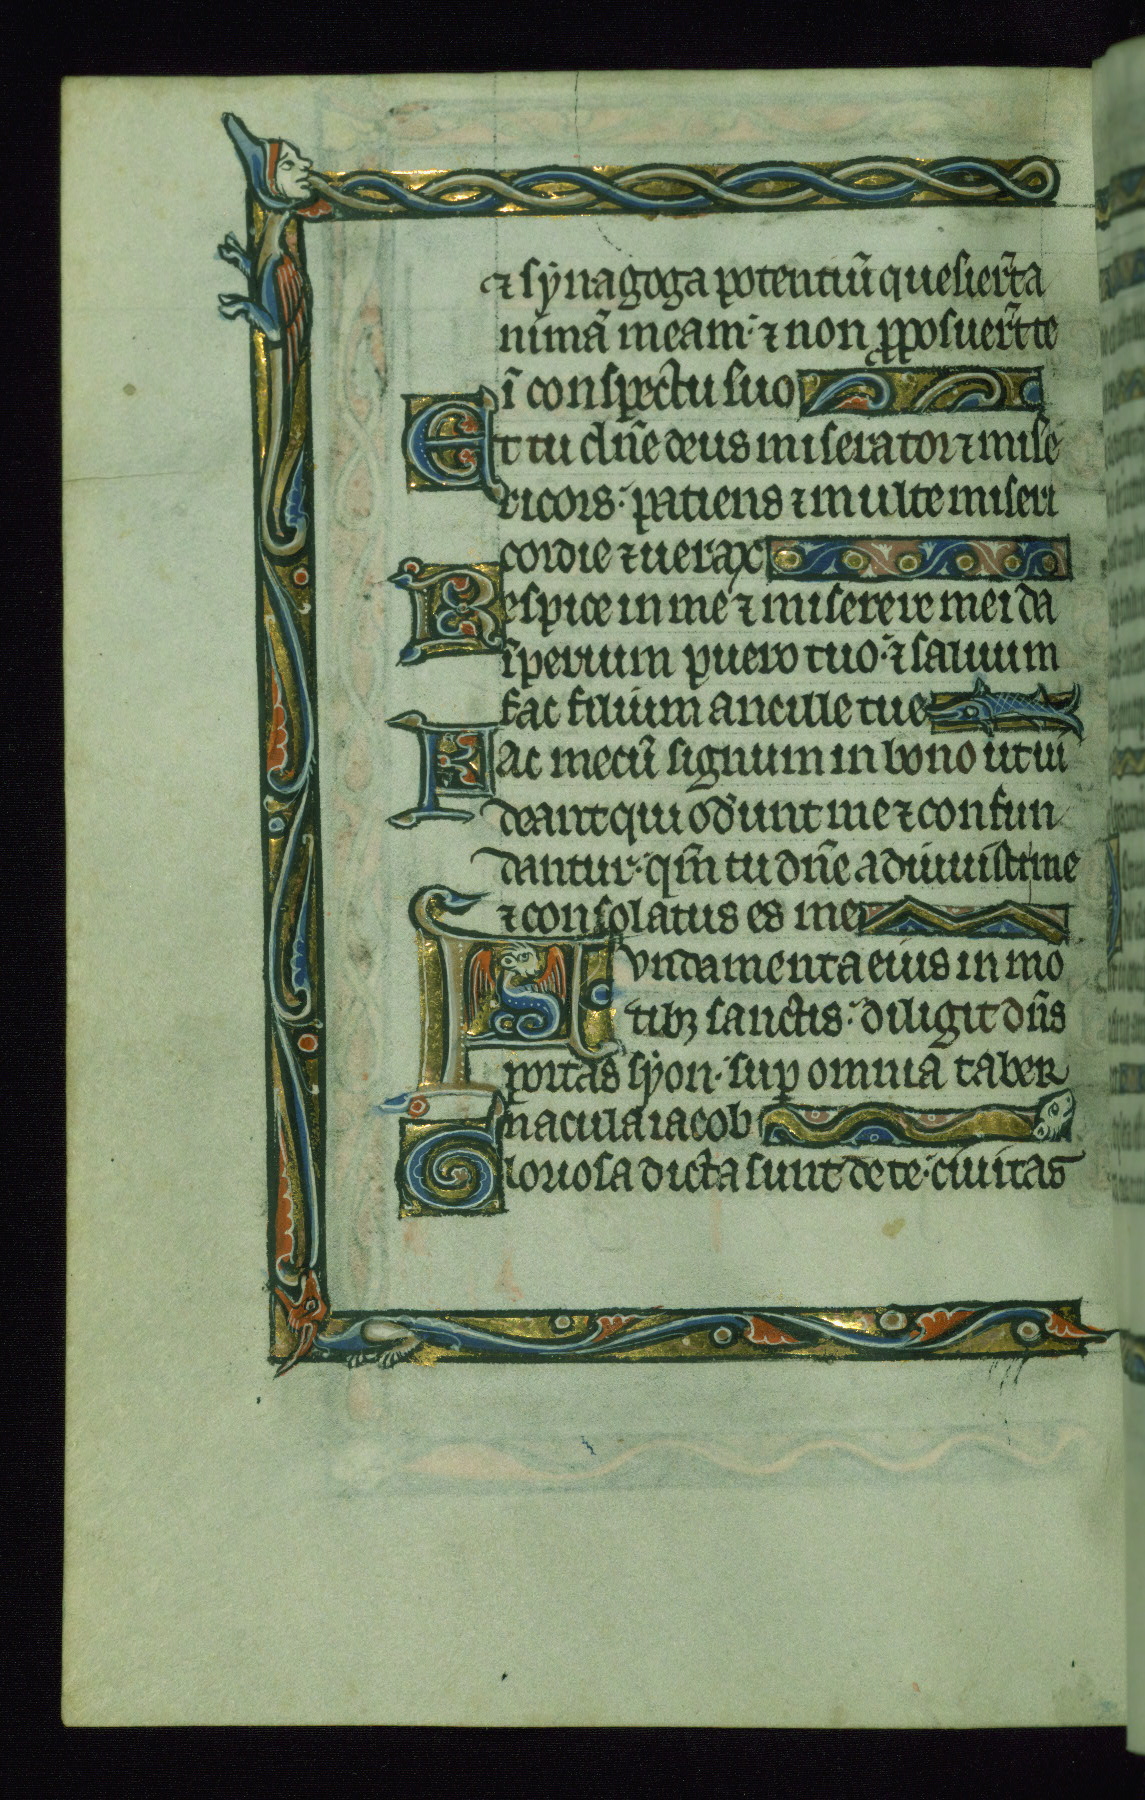 ⁊ synagoga potentiū quesier̄t a
nimā meam· ⁊ non pposuer̄t te
ī conspectu suo
Et tu dn̄e deus miserator ⁊ mise
ricors· patiens ⁊ multe miseri
cordie ⁊ uerax
Respice in me ⁊ miserere mei da
īperium puero tuo· ⁊ saluum
fac filium ancille tue
Fac mecū signum in bono ut ui
deant qui oderunt me ⁊ confun
dantur· qm̄ tu dn̄e adiuuisti me
⁊ consolatus es me
Fundamenta eius in mo
tibꝫ sanctis· diligit dn̄s
portas syon· sup omnia taber
nacula iacob
Gloriosa dicta sunt de te· ciuitas